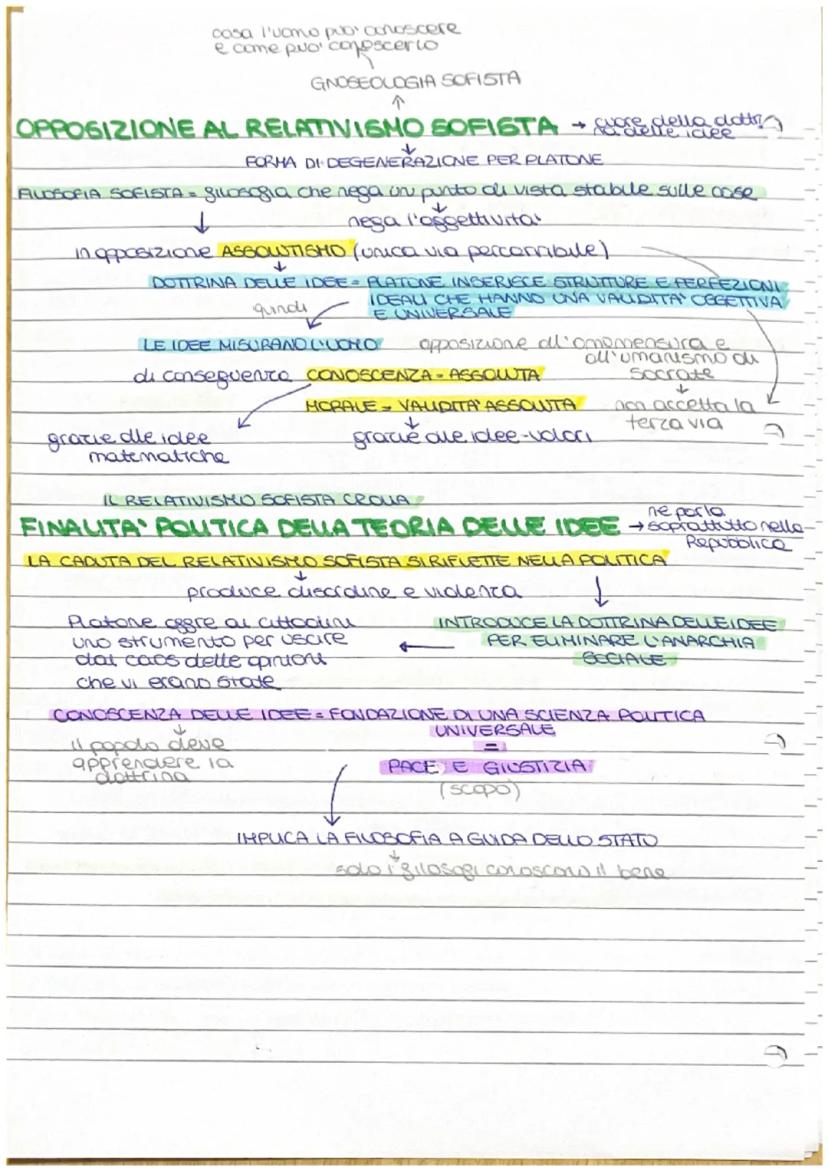 cosa l'uomo puo' conoscere
e come puo' conoscerlo
GNOSEOLOGIA SOFISTA
↑
OPPOSIZIONE AL RELATIVISMO SOFISTA → cuore della dottri
na delle idee
↓
FORMA DI DEGENERAZIONE PER PLATONE
FILOSOFIA SOFISTA = filosofia che nega un punto di vista stabile sulle cose
nega l'oggettivita'
in opposizione ASSOLUTISMO (unica via percorribile)
DOTTRINA DELLE IDEE = PLATONE INSERISCE STRUTTURE E PERFEZIONI
quindi IDEALI CHE HANNO UNA VALIDITA' OGGETTIVA
E UNIVERSALE
LE IDEE MISURANO L'UOMO opposizione all'omomensura e
all'umanismo di
Socrate
di conseguenza CONOSCENZA = ASSOLUTA
MORALE = VALIDITA' ASSOLUTA non accetta la
terza via
grazie alle idee
matematiche
grazie alle idee-valori
IL RELATIVISMO SOFISTA CROLLA
FINALITA' POLITICA DELLA TEORIA DELLE IDEE → ne parla
soprattutto nella
Repubblica
LA CADUTA DEL RELATIVISMO SOFISTA SI RIFLETTE NELLA POLITICA
produce disordine e violenza
Platone offre ai cittadini
uno strumento per uscire
dal caos delle opinioni
che vi erano state
INTRODUCE LA DOTTRINA DELLE IDEE
PER ELIMINARE L'ANARCHIA
SOCIALE
CONOSCENZA DELLE IDEE = FONDAZIONE DI UNA SCIENZA POLITICA
UNIVERSALE
il popolo deve
apprendere la
dottrina
=
PACE E GIUSTIZIA
(scopo)
IMPLICA LA FILOSOFIA A GUIDA DELLO STATO
solo i filosofi conoscono il bene